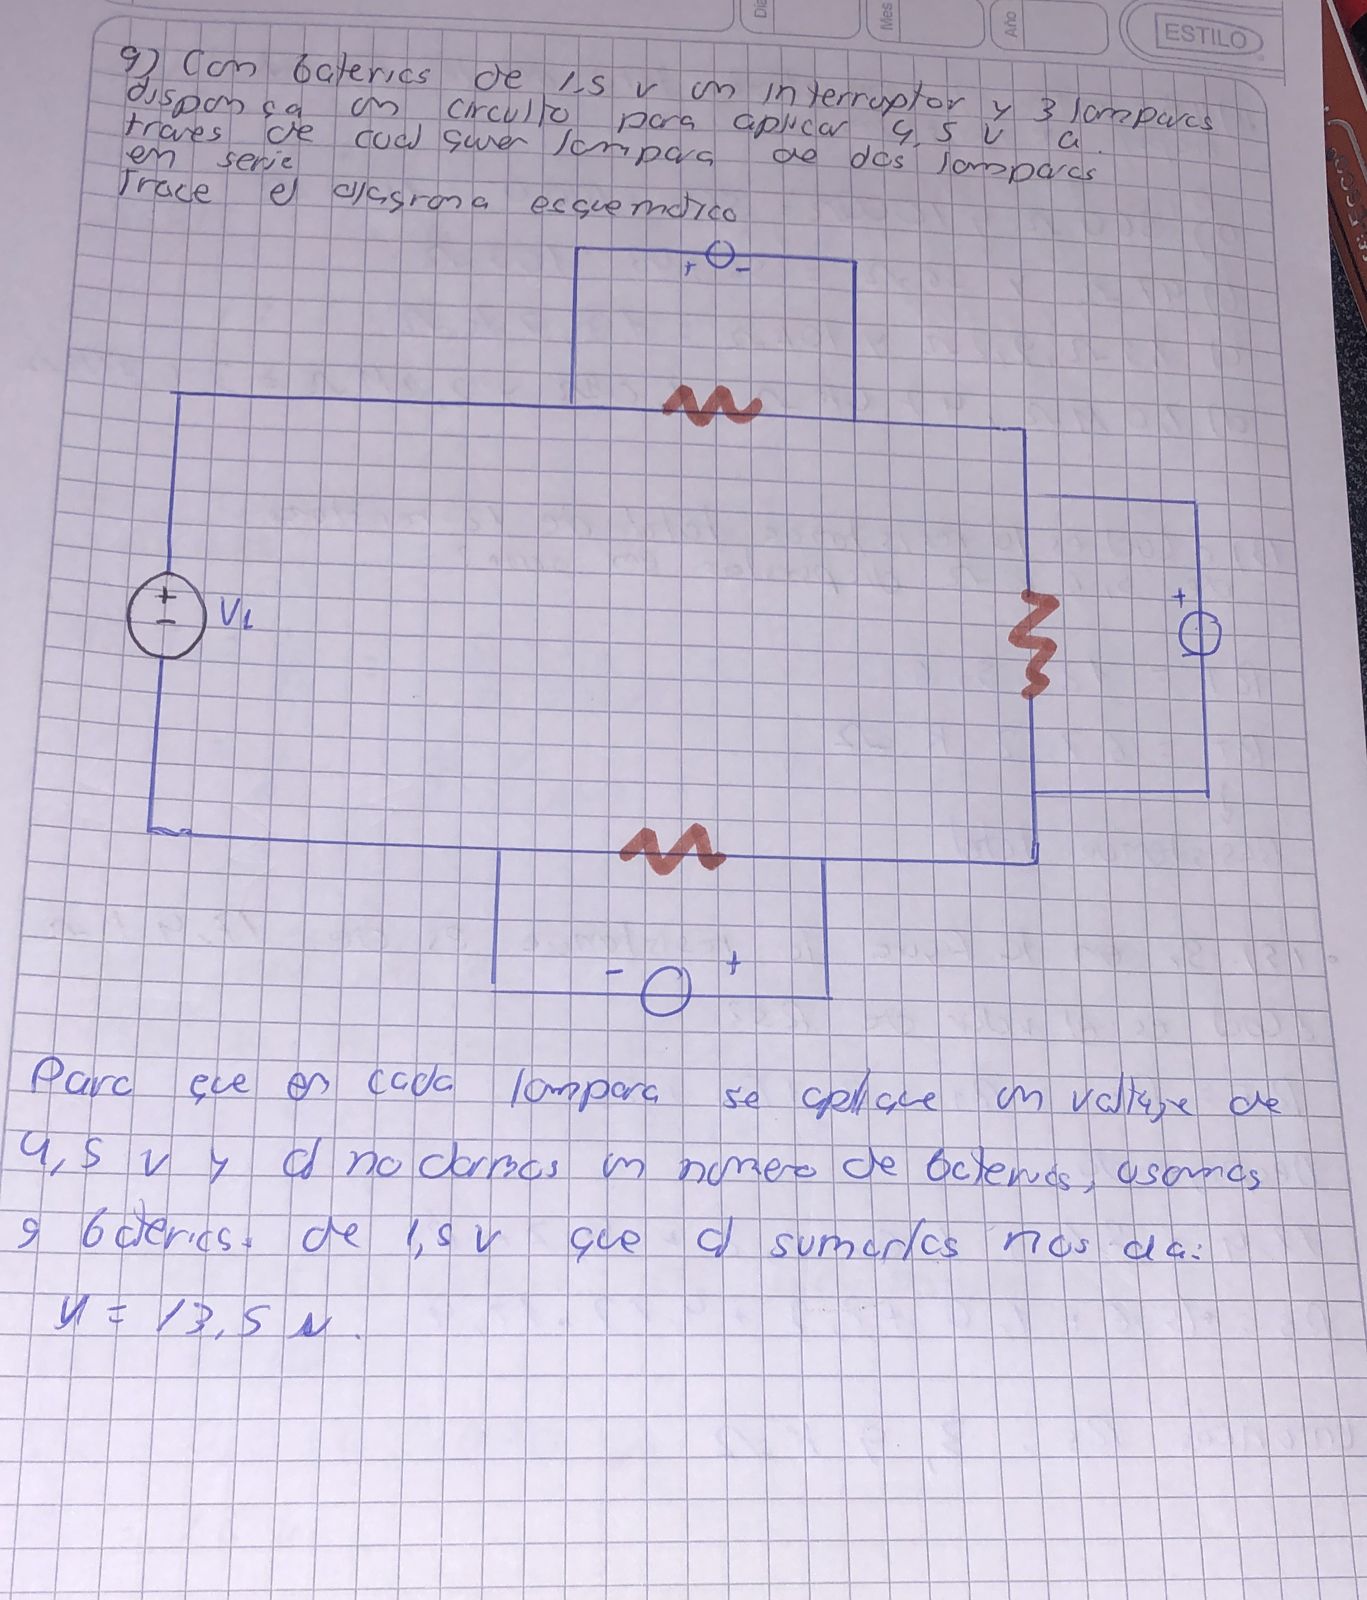 Dia
Mes
Año
ESTILO
9) Con baterias de 1,5 v un interruptor y 3 lamparas
disponga un circuito para aplicar 4,5 v a
traves de cualquier lampara de dos lamparas
en serie
Trace el diagrama esquematico
+ -
+
- V1
+
- +
Para que en cada lampara se aplique un voltaje de
4,5 v y al no darnos un numero de baterias, usamos
9 baterias de 1,5 v que al sumarlas nos da:
V = 13,5 v.